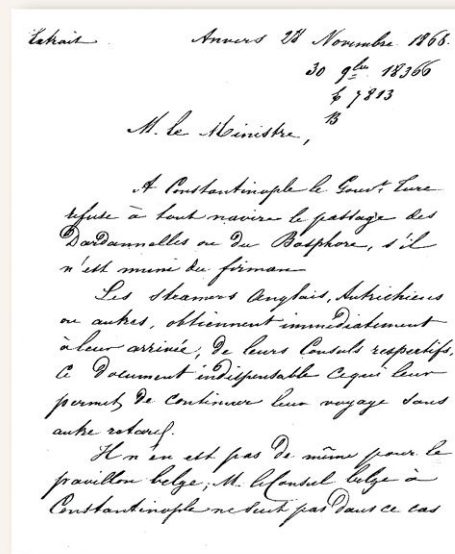 Extrait Anvers 28 Novembre 1868.
30 9bre 18366
7813
B
M. le Ministre,
A Constantinople le Gouvt. Turc
refuse à tout navire le passage des
Dardannelles ou du Bosphore, s'il
n'est muni du firman
Les steamers Anglais, Autrichiens
ou autres, obtiennent immédiatement
à leur arrivée, de leurs Consuls respectifs,
ce document indispensable ce qui leur
permet de continuer leur voyage sans
autre retard.
Il n'en est pas de même pour le
pavillon belge; M. le Consul belge à
Constantinople ne peut pas dans ce cas